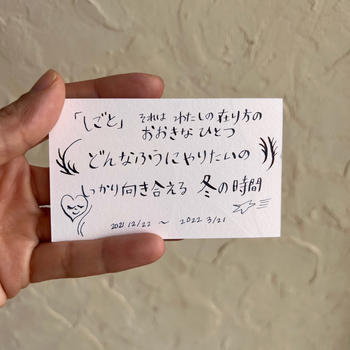 「しごと」 それは わたしの 在り方の
おおきな ひとつ
どんなふうにやりたいの
しっかり向き合える 冬の時間
2021 12/22 〜 2022 3/21